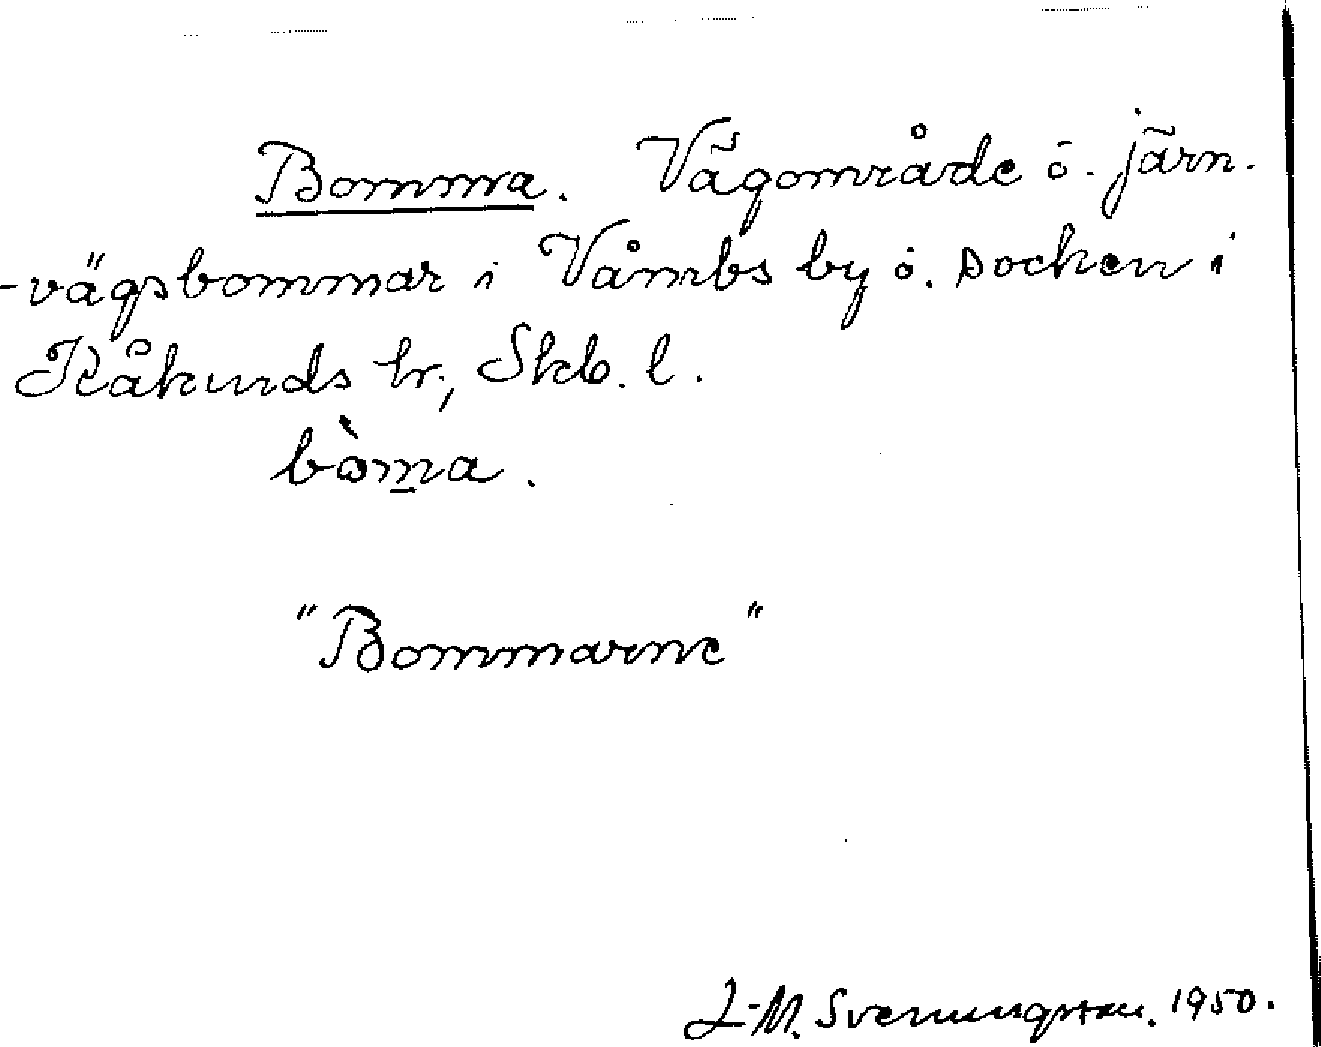 Bomma. Vägområde ö. järn-
-vägsbommar i Våmbs by ö. socken i
Kåkinds hr., Skb. l.
bòma.
"Bommarne"
L-M. Svenungsson. 1950.